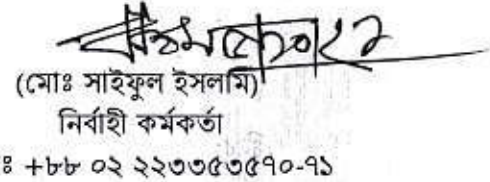 (মোঃ সাইফুল ইসলাম)
নির্বাহী কর্মকর্তা
ঃ +৮৮ ০২ ২২৩৩৫৩৫৭০-৭১